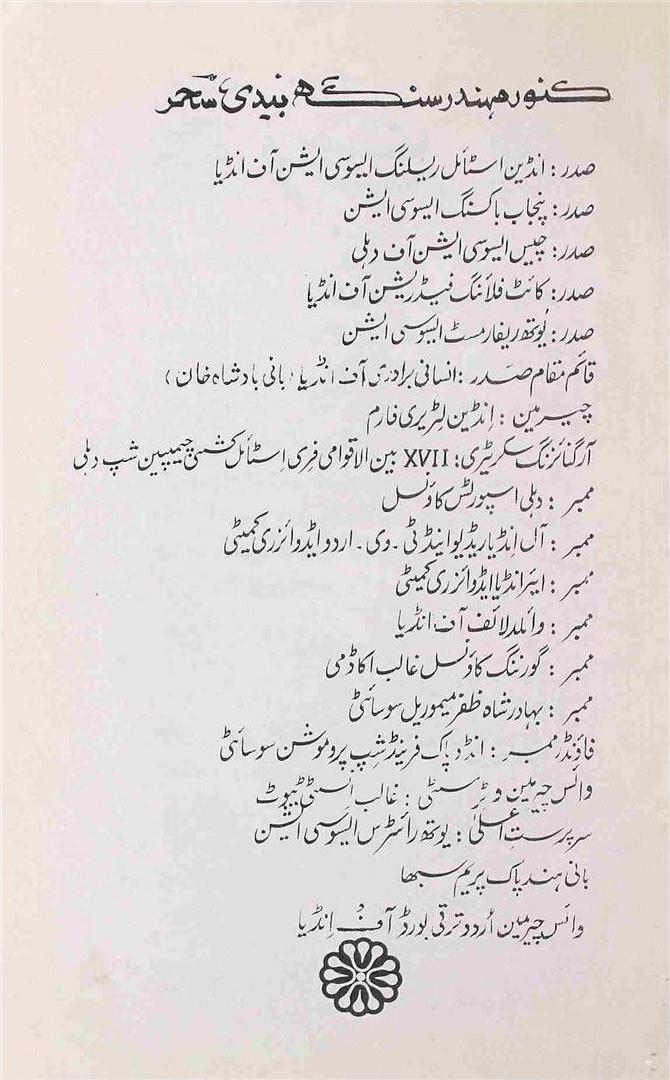 کنور مہندر سنگھ بیدی سحر
صدر : انڈین اسٹائل ریسلنگ ایسوسی ایشن آف انڈیا
صدر : پنجاب باکسنگ ایسوسی ایشن
صدر : چیس ایسوسی ایشن آف دہلی
صدر : کائٹ فلائنگ فیڈریشن آف انڈیا
صدر : یُوتھ ریفارمسٹ ایسوسی ایشن
قائم مقام صدر : انسانی برادری آف انڈیا (بانی بادشاہ خان)
چیرمین : اِنڈین لٹریری فارم
آرگنائزنگ سکریٹری : XVII بین الاقوامی فری اِسٹائل کشتی چیمپین شپ دہلی
ممبر : دہلی اسپورٹس کاؤنسل
ممبر : آل انڈیا ریڈیو اینڈ ٹی ۔ وی ۔ اردو ایڈوائزری کمیٹی
ممبر : ایئر انڈیا ایڈوائزری کمیٹی
ممبر : وائلڈ لائف آف انڈیا
ممبر : گورننگ کاؤنسل غالب اکاڈمی
ممبر : بہادر شاہ ظفر میموریل سوسائٹی
فاؤنڈر ممبر : انڈو پاک فرینڈشِپ پروموشن سوسائٹی
وائس چیرمین و ٹرسٹی : غالب انسٹی ٹیوٹ
سرپرستِ اعلیٰ : یوتھ رائٹرس ایسوسی ایشن
بانی ہند پاک پریم سبھا
وائس چیرمین اُردو ترقی بورڈ آف اِنڈیا